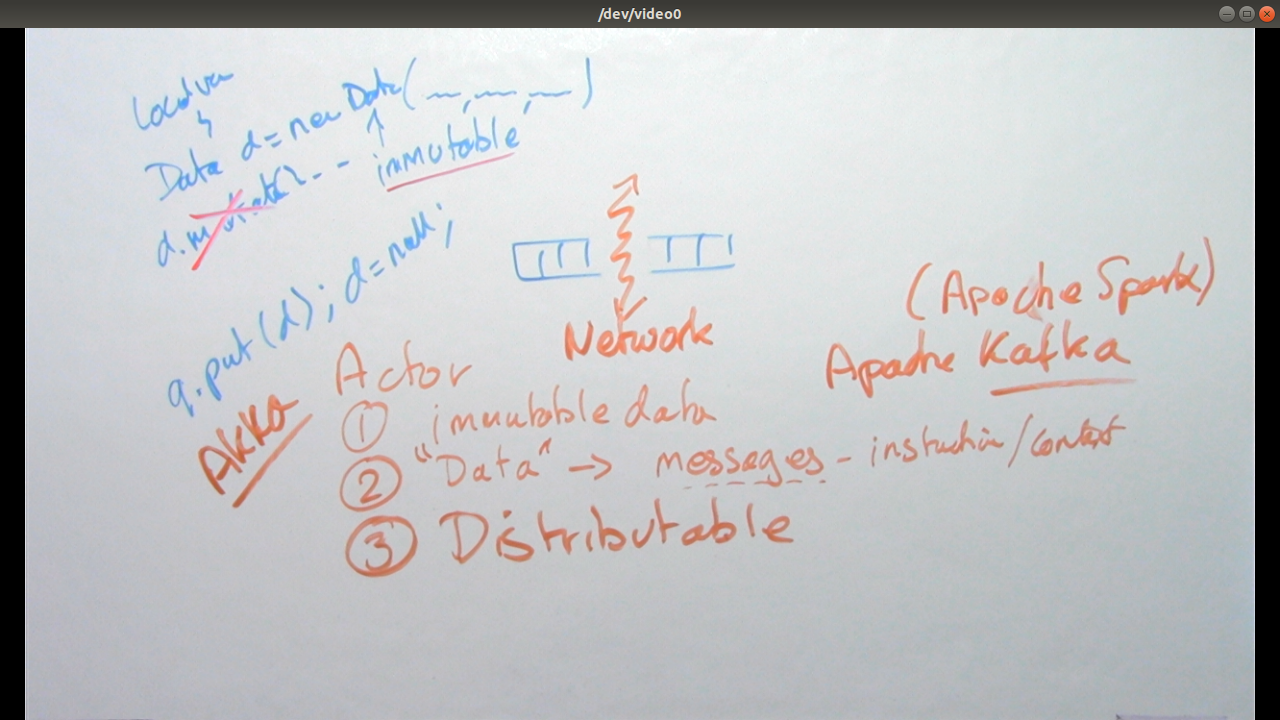 /dev/video0
Local var
Data d = new Data( , , )
d.mutate() - - immutable
q.put(d); d=null;
Network
(Apache Spark)
Apache Kafka
AKKA
Actor
① immutable data
② "Data" → messages - instruction/context
③ Distributable